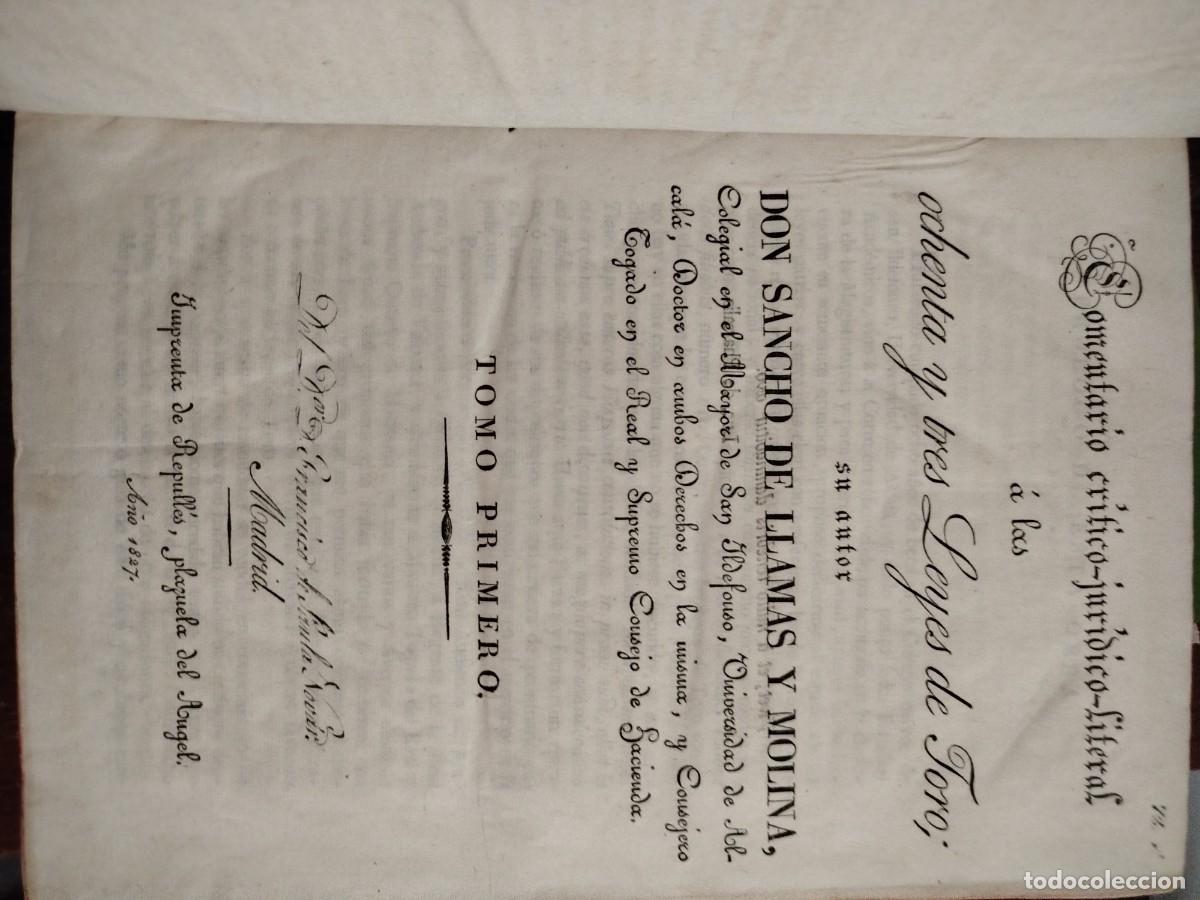 Comentario crítico-jurídico-literal
á las
ochenta y tres Leyes de Toro;
su autor
DON SANCHO DE LLAMAS Y MOLINA,
Colegial en el Mayor de San Ildefonso, Universidad de Al-
calá, Doctor en ambos Derechos en la misma, y Consejero
Togado en el Real y Supremo Consejo de Hacienda.
TOMO PRIMERO.
Del Francisco de Paula
Madrid.
Imprenta de Repullés, plazuela del Angel.
Año 1827.
todocoleccion